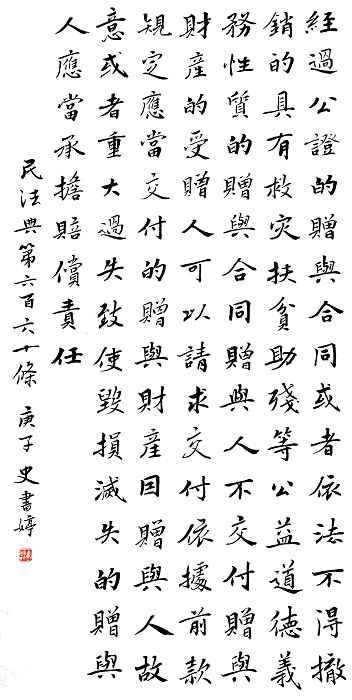 經過公證的贈與合同或者依法不得撤
銷的具有救灾扶貧助殘等公益道德義
務性質的贈與合同贈與人不交付贈與
財產的受贈人可以請求交付依據前款
規定應當交付的贈與財產因贈與人故
意或者重大過失致使毀損滅失的贈與
人應當承擔賠償責任
民法典第六百六十條 庚子 史書婷